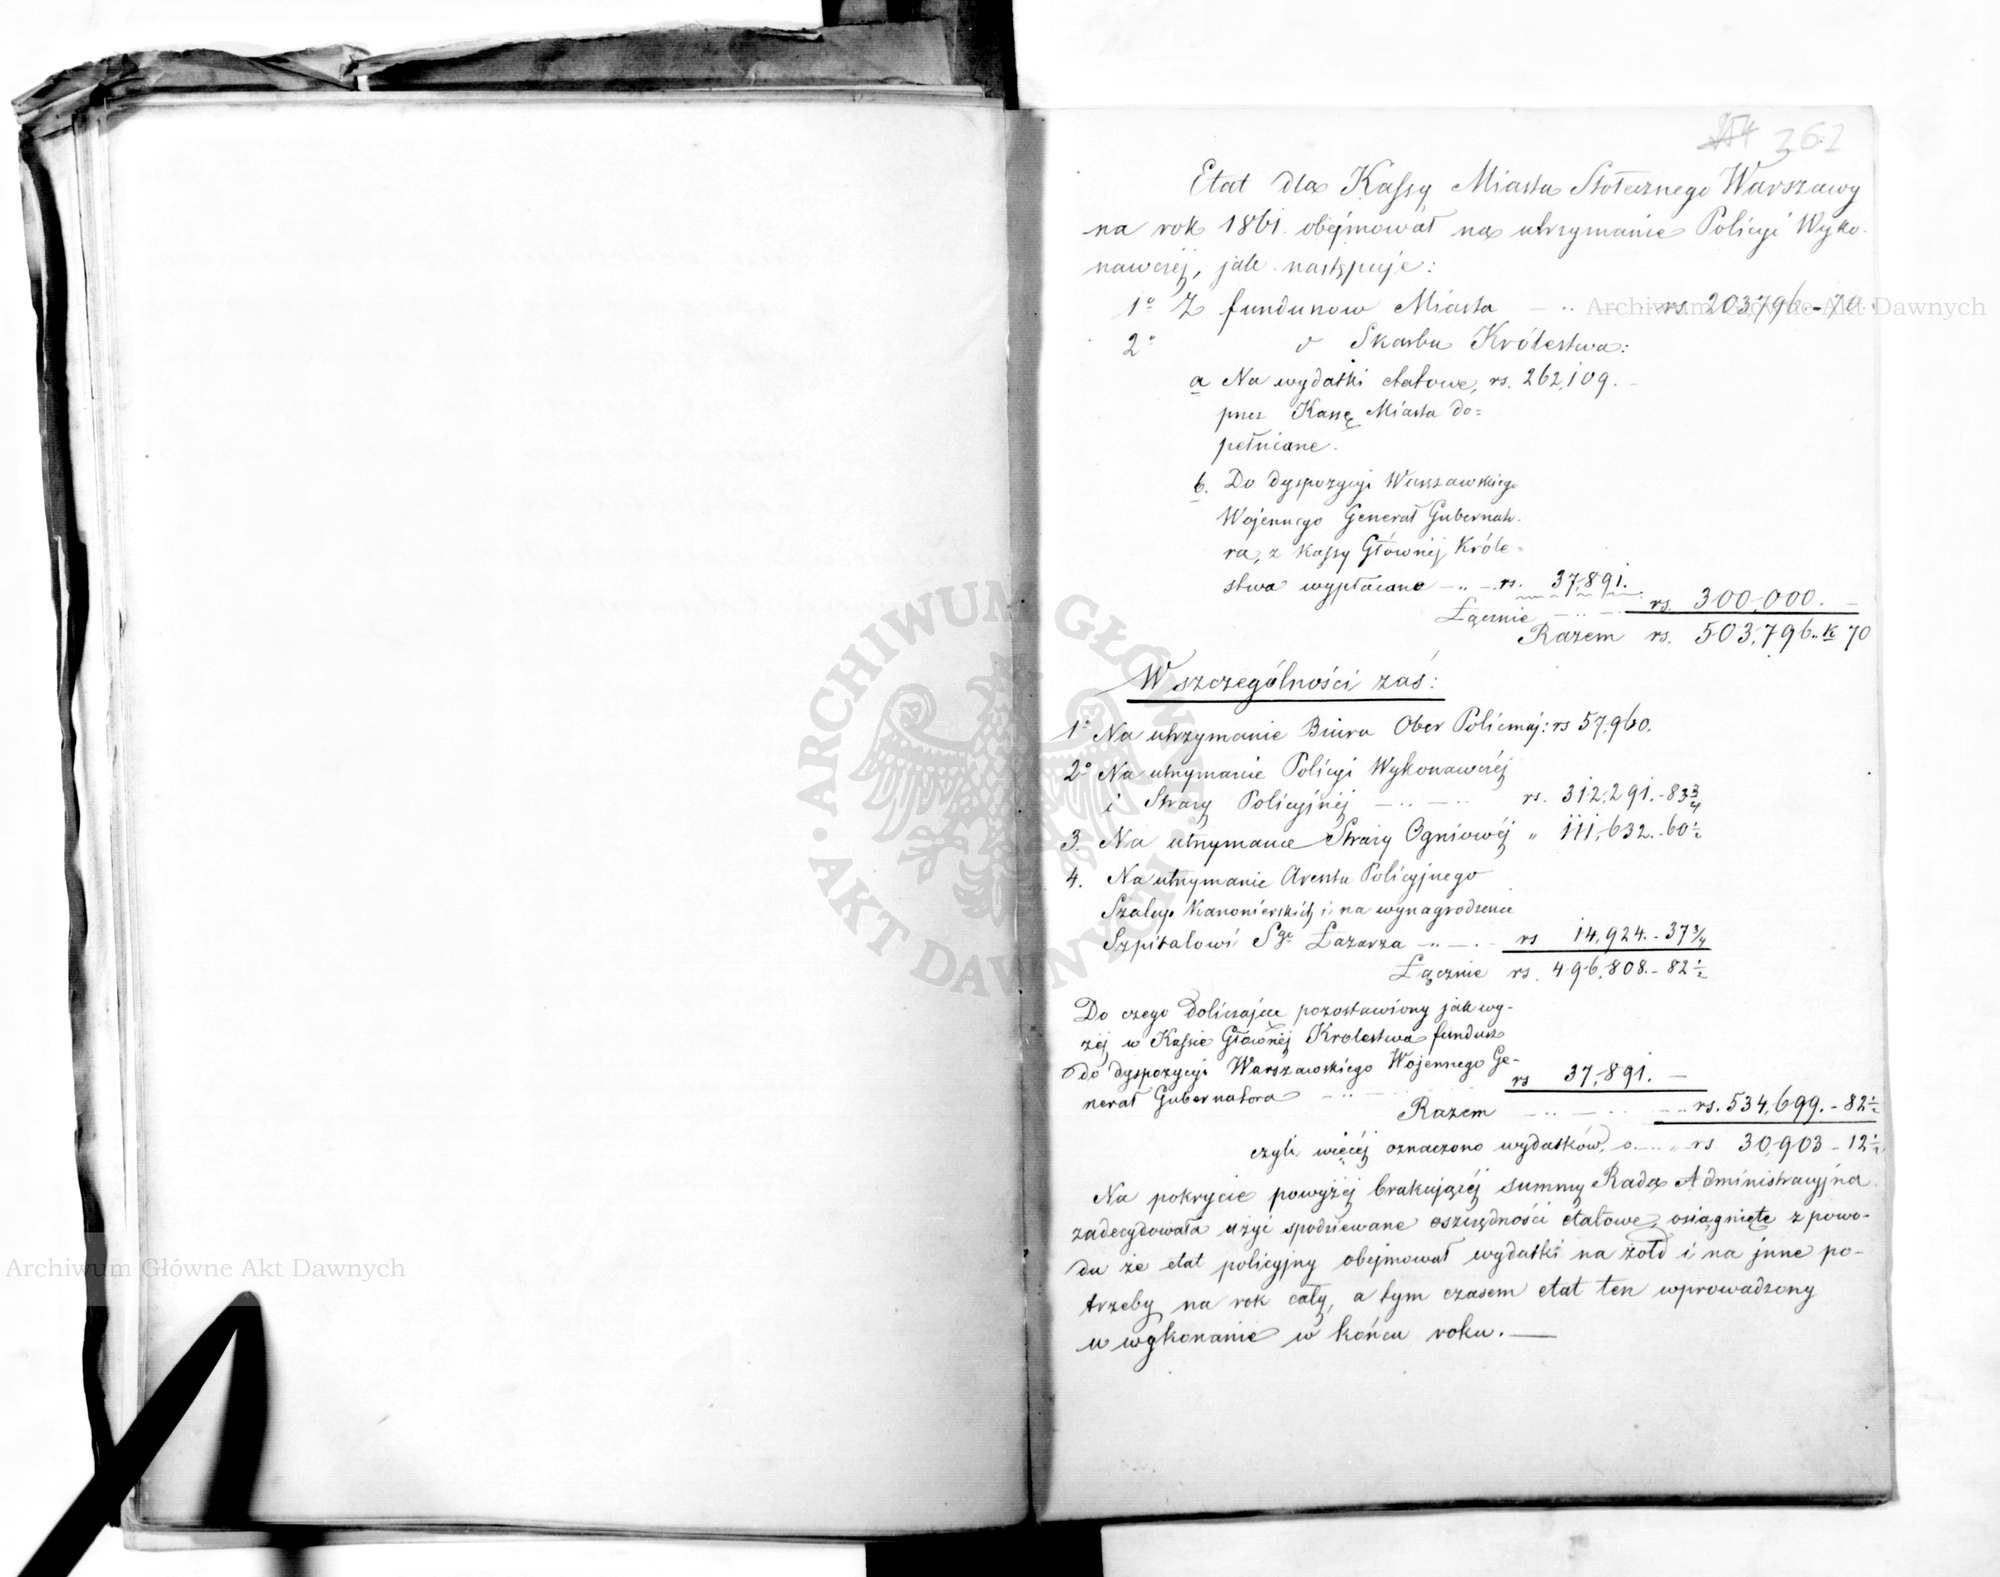 362
Etat dla Kassy Miasta Stołecznego Warszawy
na rok 1861. obejmował na utrzymanie Policyi Wyko-
nawczéj, jak następuje:
1o Z funduszow Miasta - .. - rs. 203,796.-70.
2o " Skarbu Królestwa:
a Na wydatki etatowe, rs. 262,109. -
przez Kassę Miasta do=
pełniane.
b. Do dyspozycyi Warszawskiego
Wojennego Generał Gubernato-
ra, z Kassy Głównéj Króle-
stwa wypłacane - .. - rs. 37,891.
Łącznie - .. - rs. 300,000. -
Razem rs. 503,796.. K 70
W szczególności zaś:
1o Na utrzymanie Biura Ober Policmaj: rs 57,960.
2o Na utrzymanie Policyi Wykonawczéj
i Straży Policyjnéj - .. - .. rs. 312,291.-83 3/4
3. Na utrzymanie Straży Ogniowéj " 111,632.-60 1/2
4. Na utrzymanie Aresztu Policyjnego
Szalup Kanonierskich i na wynagrodzenie
Szpitalowi Sgo Łazarza - .. - . - rs 14,924.-37 3/4
Łącznie rs. 496,808.-82 1/2
Do czego doliczając pozostawiony jak wy-
zéj w Kassie Głównéj Krolestwa fundusz
do dyspozycyi Warszawskiego Wojennego Ge-
nerał Gubernatora - .. - rs 37,891. -
Razem - .. - .. - .. rs. 534,699.-82 1/2
czyli więcéj oznaczono wydatków, o - .. " rs. 30,903-12 1/2
Na pokrycie powyżéj brakującéj summy Rada Administracyjna
zadecydowała użyć spodziewane oszczędności etatowe, osiągnięte z powo-
du że etat policyjny obejmował wydatki na żołd i na jnne po-
trzeby na rok cały, a tym czasem etat ten wprowadzony
w wykonanie w końcu roku. -
Archiwum Główne Akt Dawnych
Archiwum Główne Akt Dawnych
ARCHIWUM GŁÓWNE · AKT DAWNYCH ·